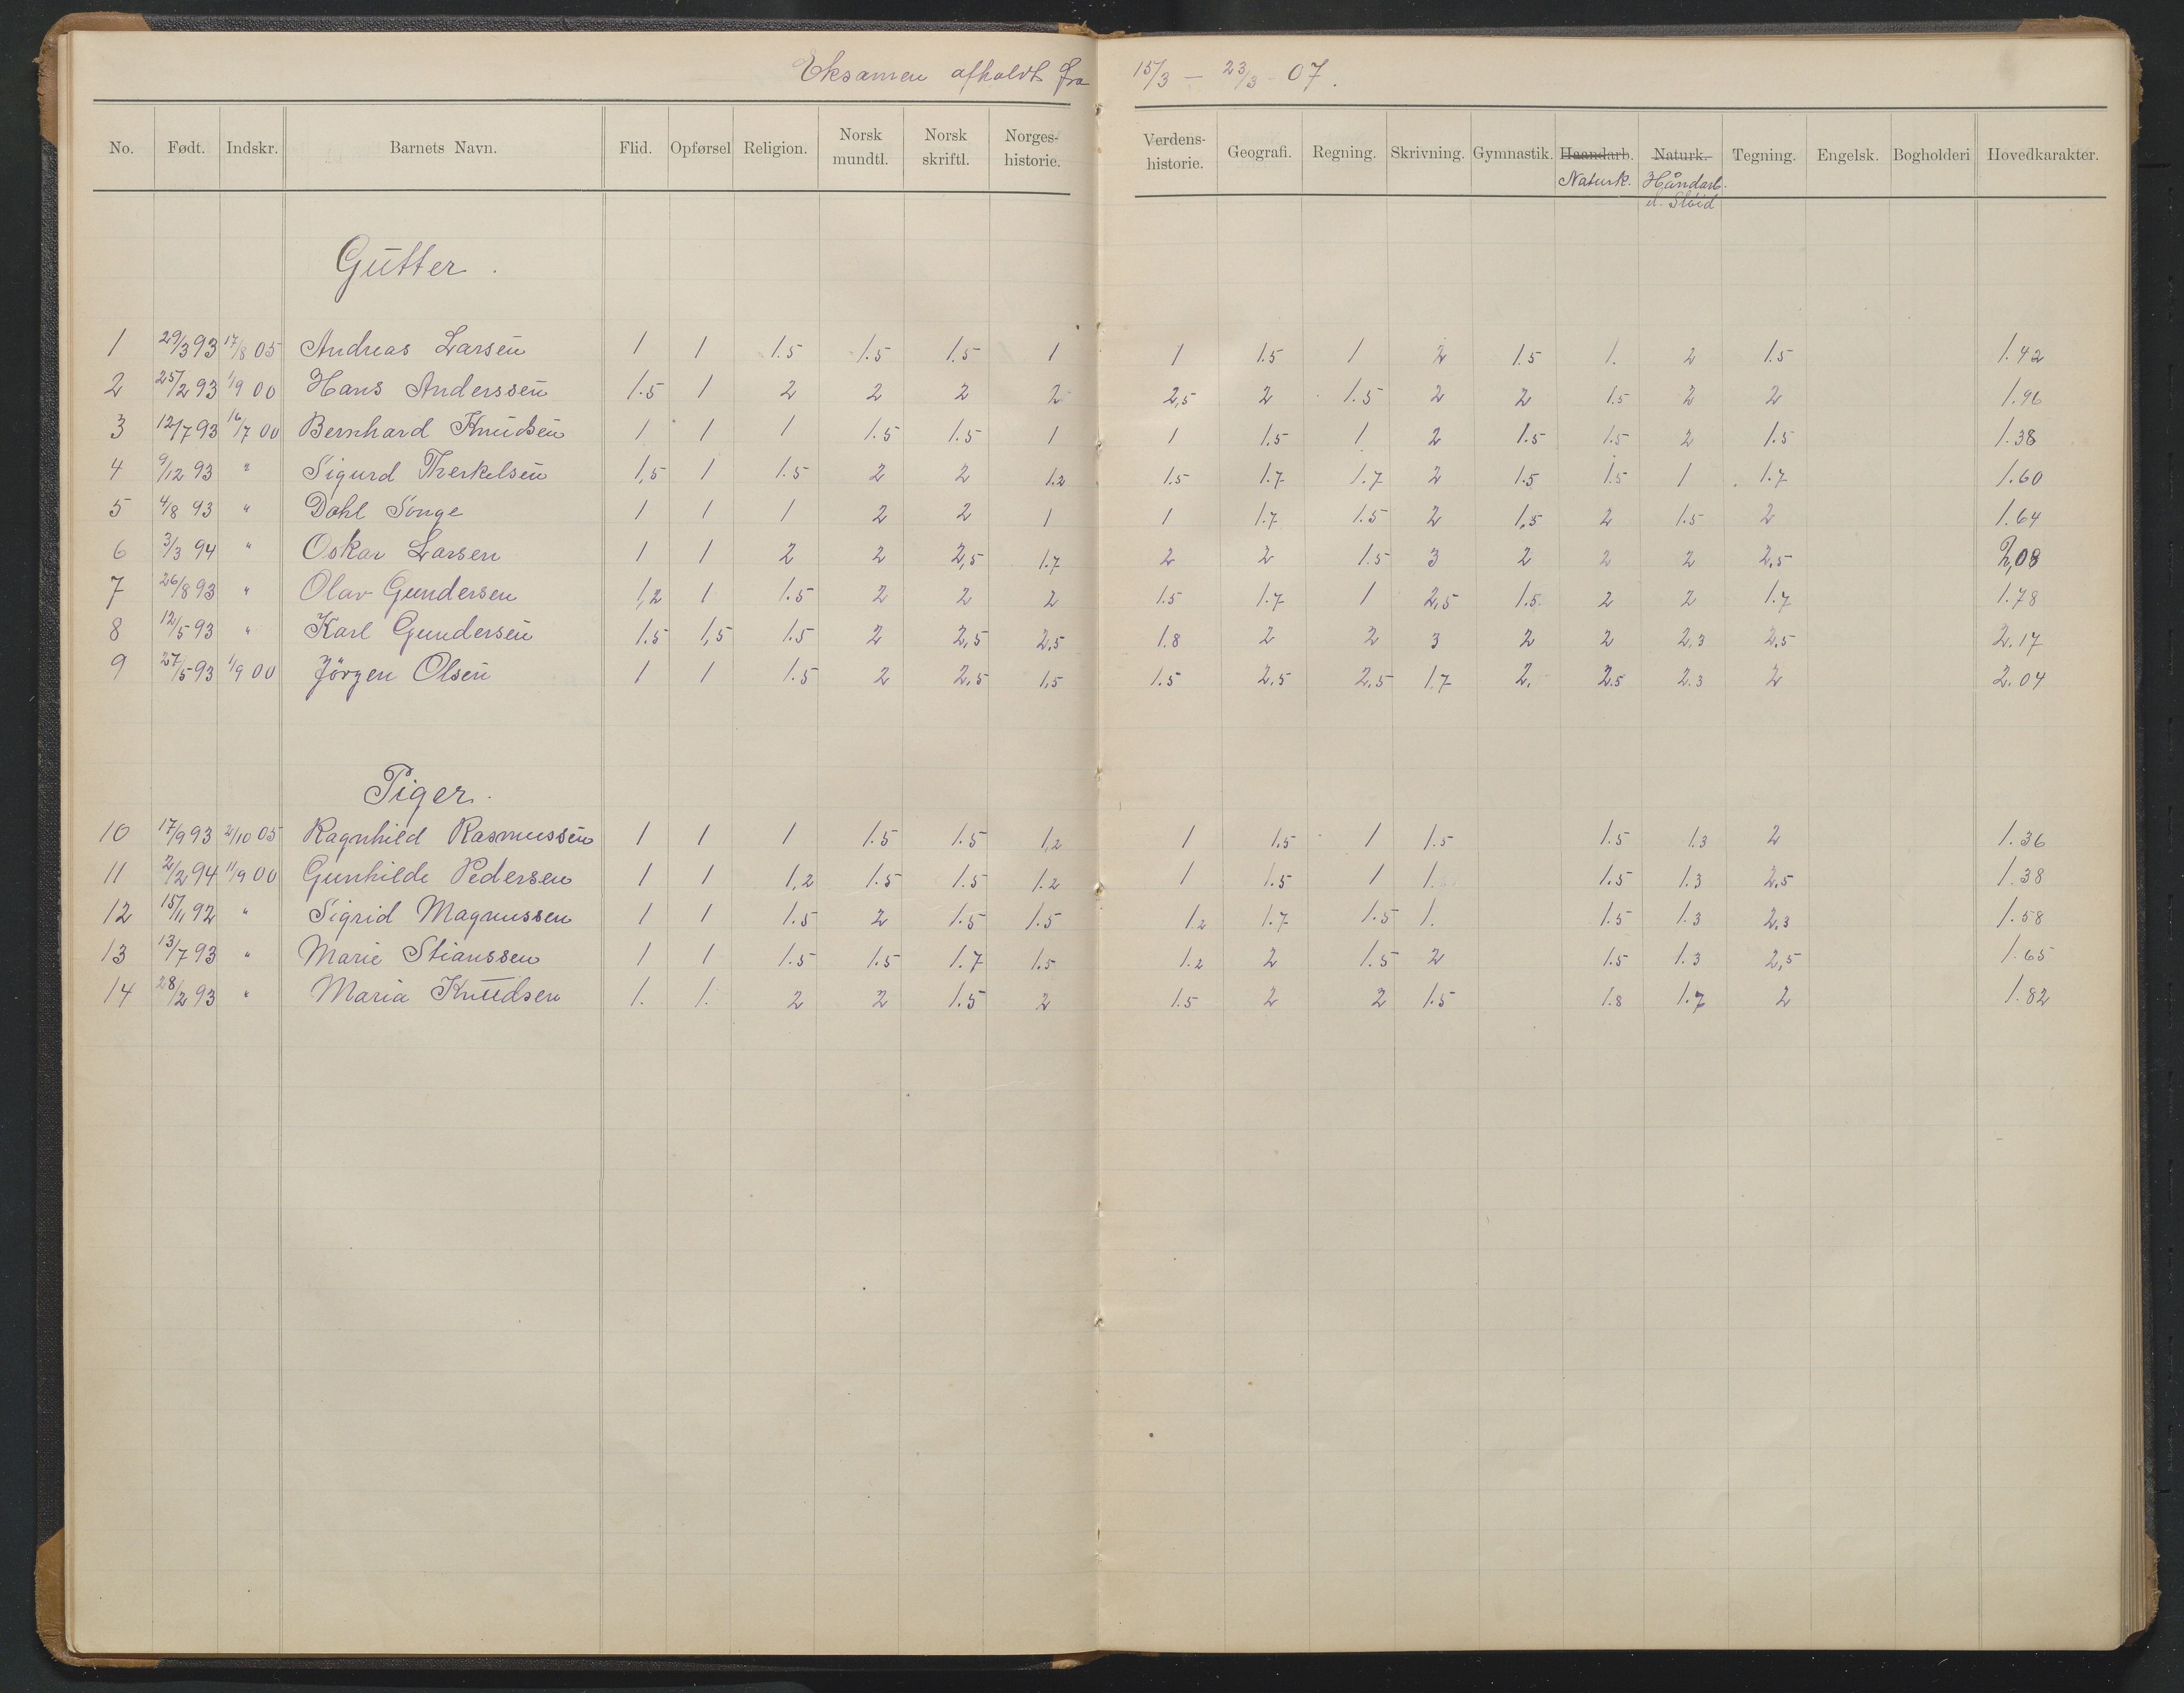 Eksamen afholdt fra 15/3 – 23/3 - 07.
No. Født. Indskr. Barnets Navn. Flid. Opførsel Religion. Norsk mundtl. Norsk skriftl. Norges-historie. Verdens-historie. Geografi. Regning. Skrivning. Gymnastik. Haandarb. Naturk. Tegning. Engelsk. Bogholderi Hovedkarakter.
Naturk. Håndarb.
el. Sløid
Gutter.
1 29/3 93 17/8 05 Andreas Larsen 1 1 1.5 1.5 1.5 1 1 1.5 1 2 1.5 1. 2 1.5 1.42
2 25/2 93 1/9 00 Hans Anderssen 1.5 1 2 2 2 2 2,5 2 1.5 2 2 1.5 2 2 1.96
3 12/7 93 16/7 00 Bernhard Knudsen 1 1 1 1.5 1.5 1 1 1.5 1 2 1.5 1.5 2 1.5 1.38
4 9/12 93 " Sigurd Therkelsen 1,5 1 1.5 2 2 1.2 1.5 1.7 1.7 2 1.5 1.5 1 1.7 1.60
5 4/8 93 " Dahl Songe 1 1 1 2 2 1 1 1.7 1.5 2 1,5 2 1.5 2 1.64
6 3/3 94 " Oskar Larsen 1 1 2 2 2,5 1.7 2 2 1.5 3 2 2 2 2.5 2,08
7 26/8 93 " Olav Gundersen 1,2 1 1.5 2 2 2 1.5 1.7 1 2,5 1.5 2 2 1.7 1.78
8 12/5 93 " Karl Gundersen 1.5 1,5 1.5 2 2,5 2.5 1.8 2 2 3 2 2 2,3 2,5 2.17
9 27/5 93 1/9 00 Jörgen Olsen 1 1 1.5 2 2.5 1,5 1.5 2.5 2.5 1.7 2. 2.5 2.3 2 2.04
Piger.
10 17/9 93 2/10 05 Ragnhild Rasmussen 1 1 1 1.5 1.5 1,2 1 1.5 1 1.5 1.5 1.3 2 1.36
11 2/2 94 1/9 00 Gunhilde Pedersen 1 1 1,2 1.5 1.5 1.2 1 1.5 1 1. 1.5 1.3 2,5 1.38
12 15/11 92 " Sigrid Magnussen 1 1 1.5 2 1.5 1.5 1.2 1.7 1.5 1. 1.5 1.3 2,3 1.58
13 13/7 93 " Marie Stianssen 1 1 1.5 1.5 1.7 1.5 1.2 2 1.5 2 1.5 1.3 2,5 1.65
14 28/2 93 " Maria Knudsen 1. 1. 2 2 1.5 2 1.5 2 2 1.5 1.8 1.7 2 1.82